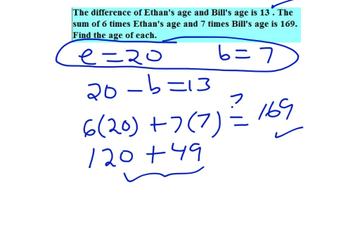 The difference of Ethan's age and Bill's age is 13 . The
sum of 6 times Ethan's age and 7 times Bill's age is 169.
Find the age of each.
e = 20 b = 7
20 - b = 13
6(20) + 7(7) ?= 169 ✓
120 + 49